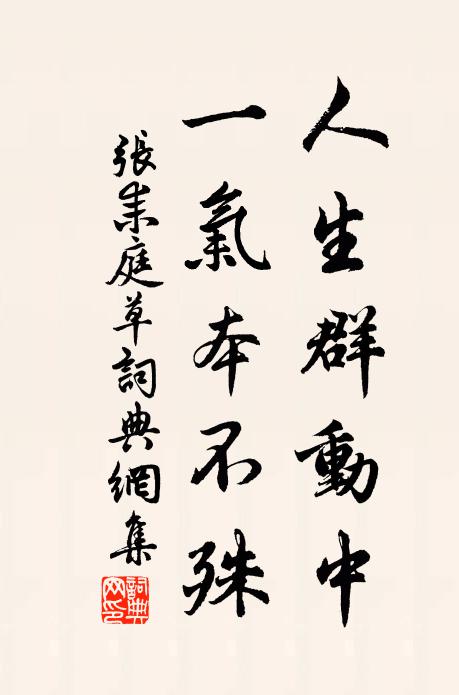 人生群動中
一氣本不殊
張耒庭草詞典網集
詞典網印